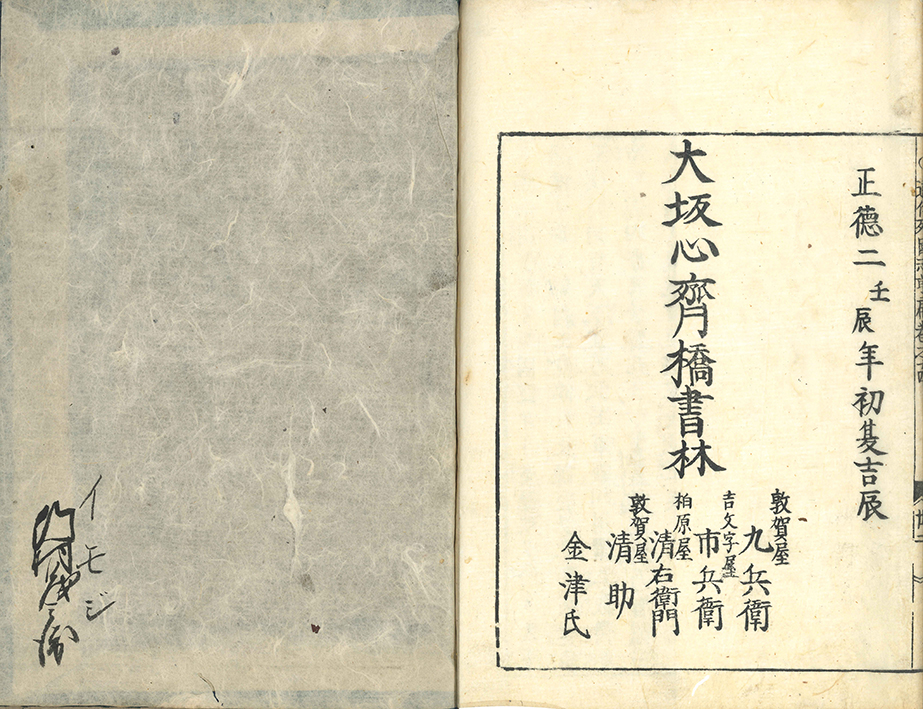 正徳二壬辰年初夏吉辰
大坂心齊橋書林
敦賀屋
九兵衛
吉文字屋
市兵衛
柏原屋
清右衛門
敦賀屋
清助
金津氏
イモジ